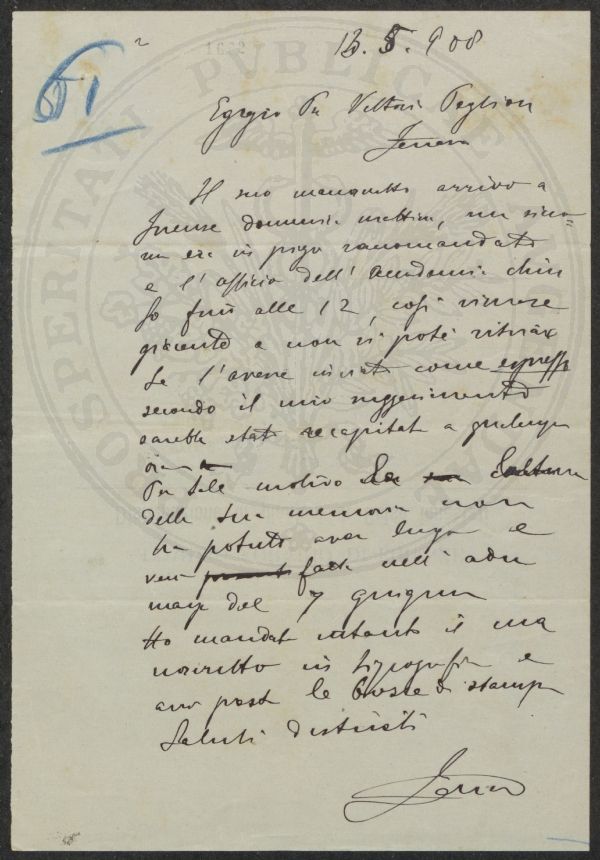 51
1622
13. 5. 908
Egregio Pr Vittorio Peglion
Ferrara
Il suo manoscritto arrivò a
Firenze domenica mattina, ma sicco=
me era in piego raccomandato
e l'officio dell'Accademia chiu
so fino alle 12, così rimase
giacente e non si poté ritirare
Se l'avesse inviato come espresso
secondo il mio suggerimento
sarebbe stato recapitato a qualunque
ora
Per tale motivo la lettura
della sua memoria non
ha potuto aver luogo e
verrà fatta nell'adu
nanza del 7 giugno
Ho mandato intanto il ma
noscritto in tipografia e
avrà presto le bozze di stampa
Saluti distinti
PVBLICAE
PROSPERITATI